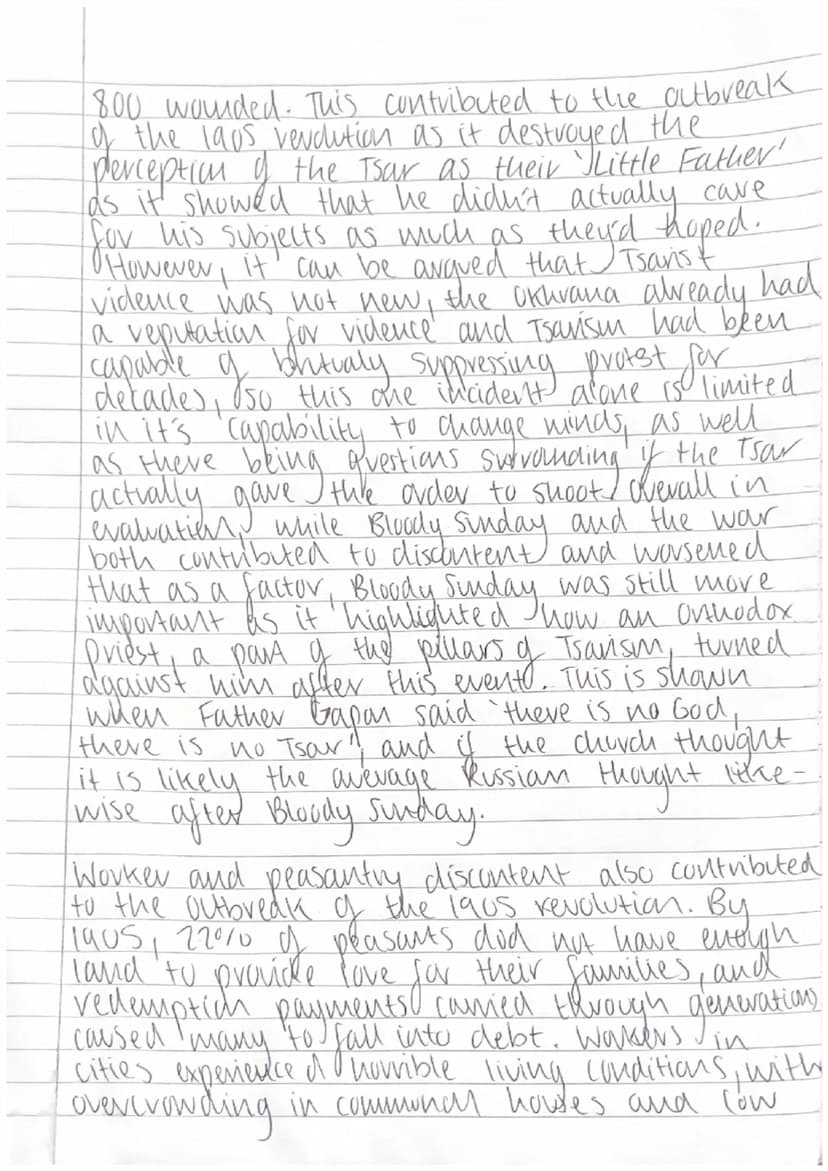 800 wounded. This contributed to the outbreak
of the 1905 revolution as it destroyed the
perception of the Tsar as their 'Little Father'
as it showed that he didn't actually care
for his subjects as much as they'd hoped.
However, it can be argued that Tsarist
violence was not new, the Okhrana already had
a reputation for violence and Tsarism had been
capable of brutualy suppressing protest for
decades, so this one incident alone is limited
in it's capability to change minds, as well
as there being questions surrounding if the Tsar
actually gave the order to shoot. Overall in
evaluation, while Bloody Sunday and the war
both contributed to discontent and worsened
that as a factor, Bloody Sunday was still more
important as it highlighted how an Orthodox
priest, a part of the pillars of Tsarism, turned
against him after this event. This is shown
when Father Gapon said 'there is no God,
there is no Tsar', and if the church thought
it is likely the average Russian thought like-
wise after Bloody Sunday.
Worker and peasantry discontent also contributed
to the outbreak of the 1905 revolution. By
1905, 22% of peasants did not have enough
land to provide for their families, and
redemption payments carried through generations
caused many to fall into debt. Workers in
cities experienced horrible living conditions, with
overcrowding in communal houses and low